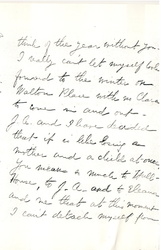 think of the year without you.
I really can't let myself look
forward to the winter on
Walton Place with no Clara
to come in and out -
J. A. and I have decided
that it is like losing a
mother and a child at once
You mean so much to Hull-
House, to J. A. and to Eleanor
and me that at this moment
I can't detach myself from